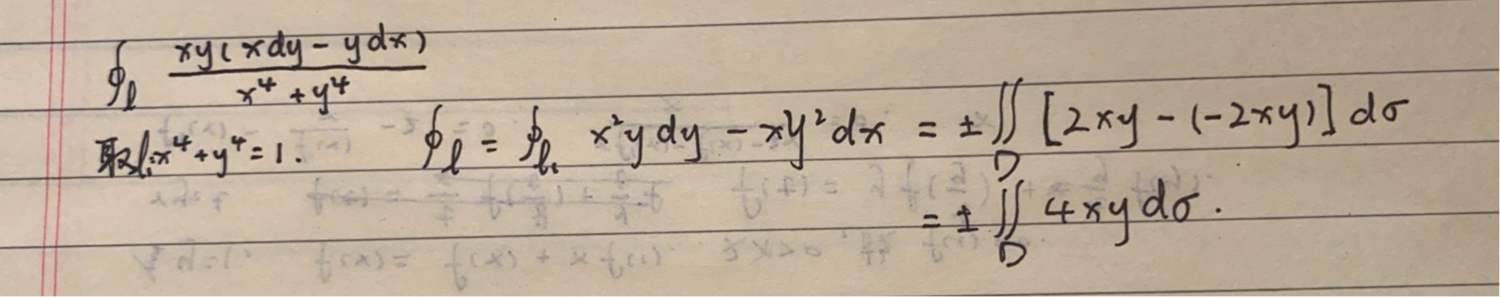 ∮_l xy(xdy - ydx) / x⁴ + y⁴
取l₁: x⁴ + y⁴ = 1. ∮_l = ∮_l₁ x²y dy - xy² dx = ± ∬_D [2xy - (-2xy)] dσ
= ± ∬_D 4xy dσ.